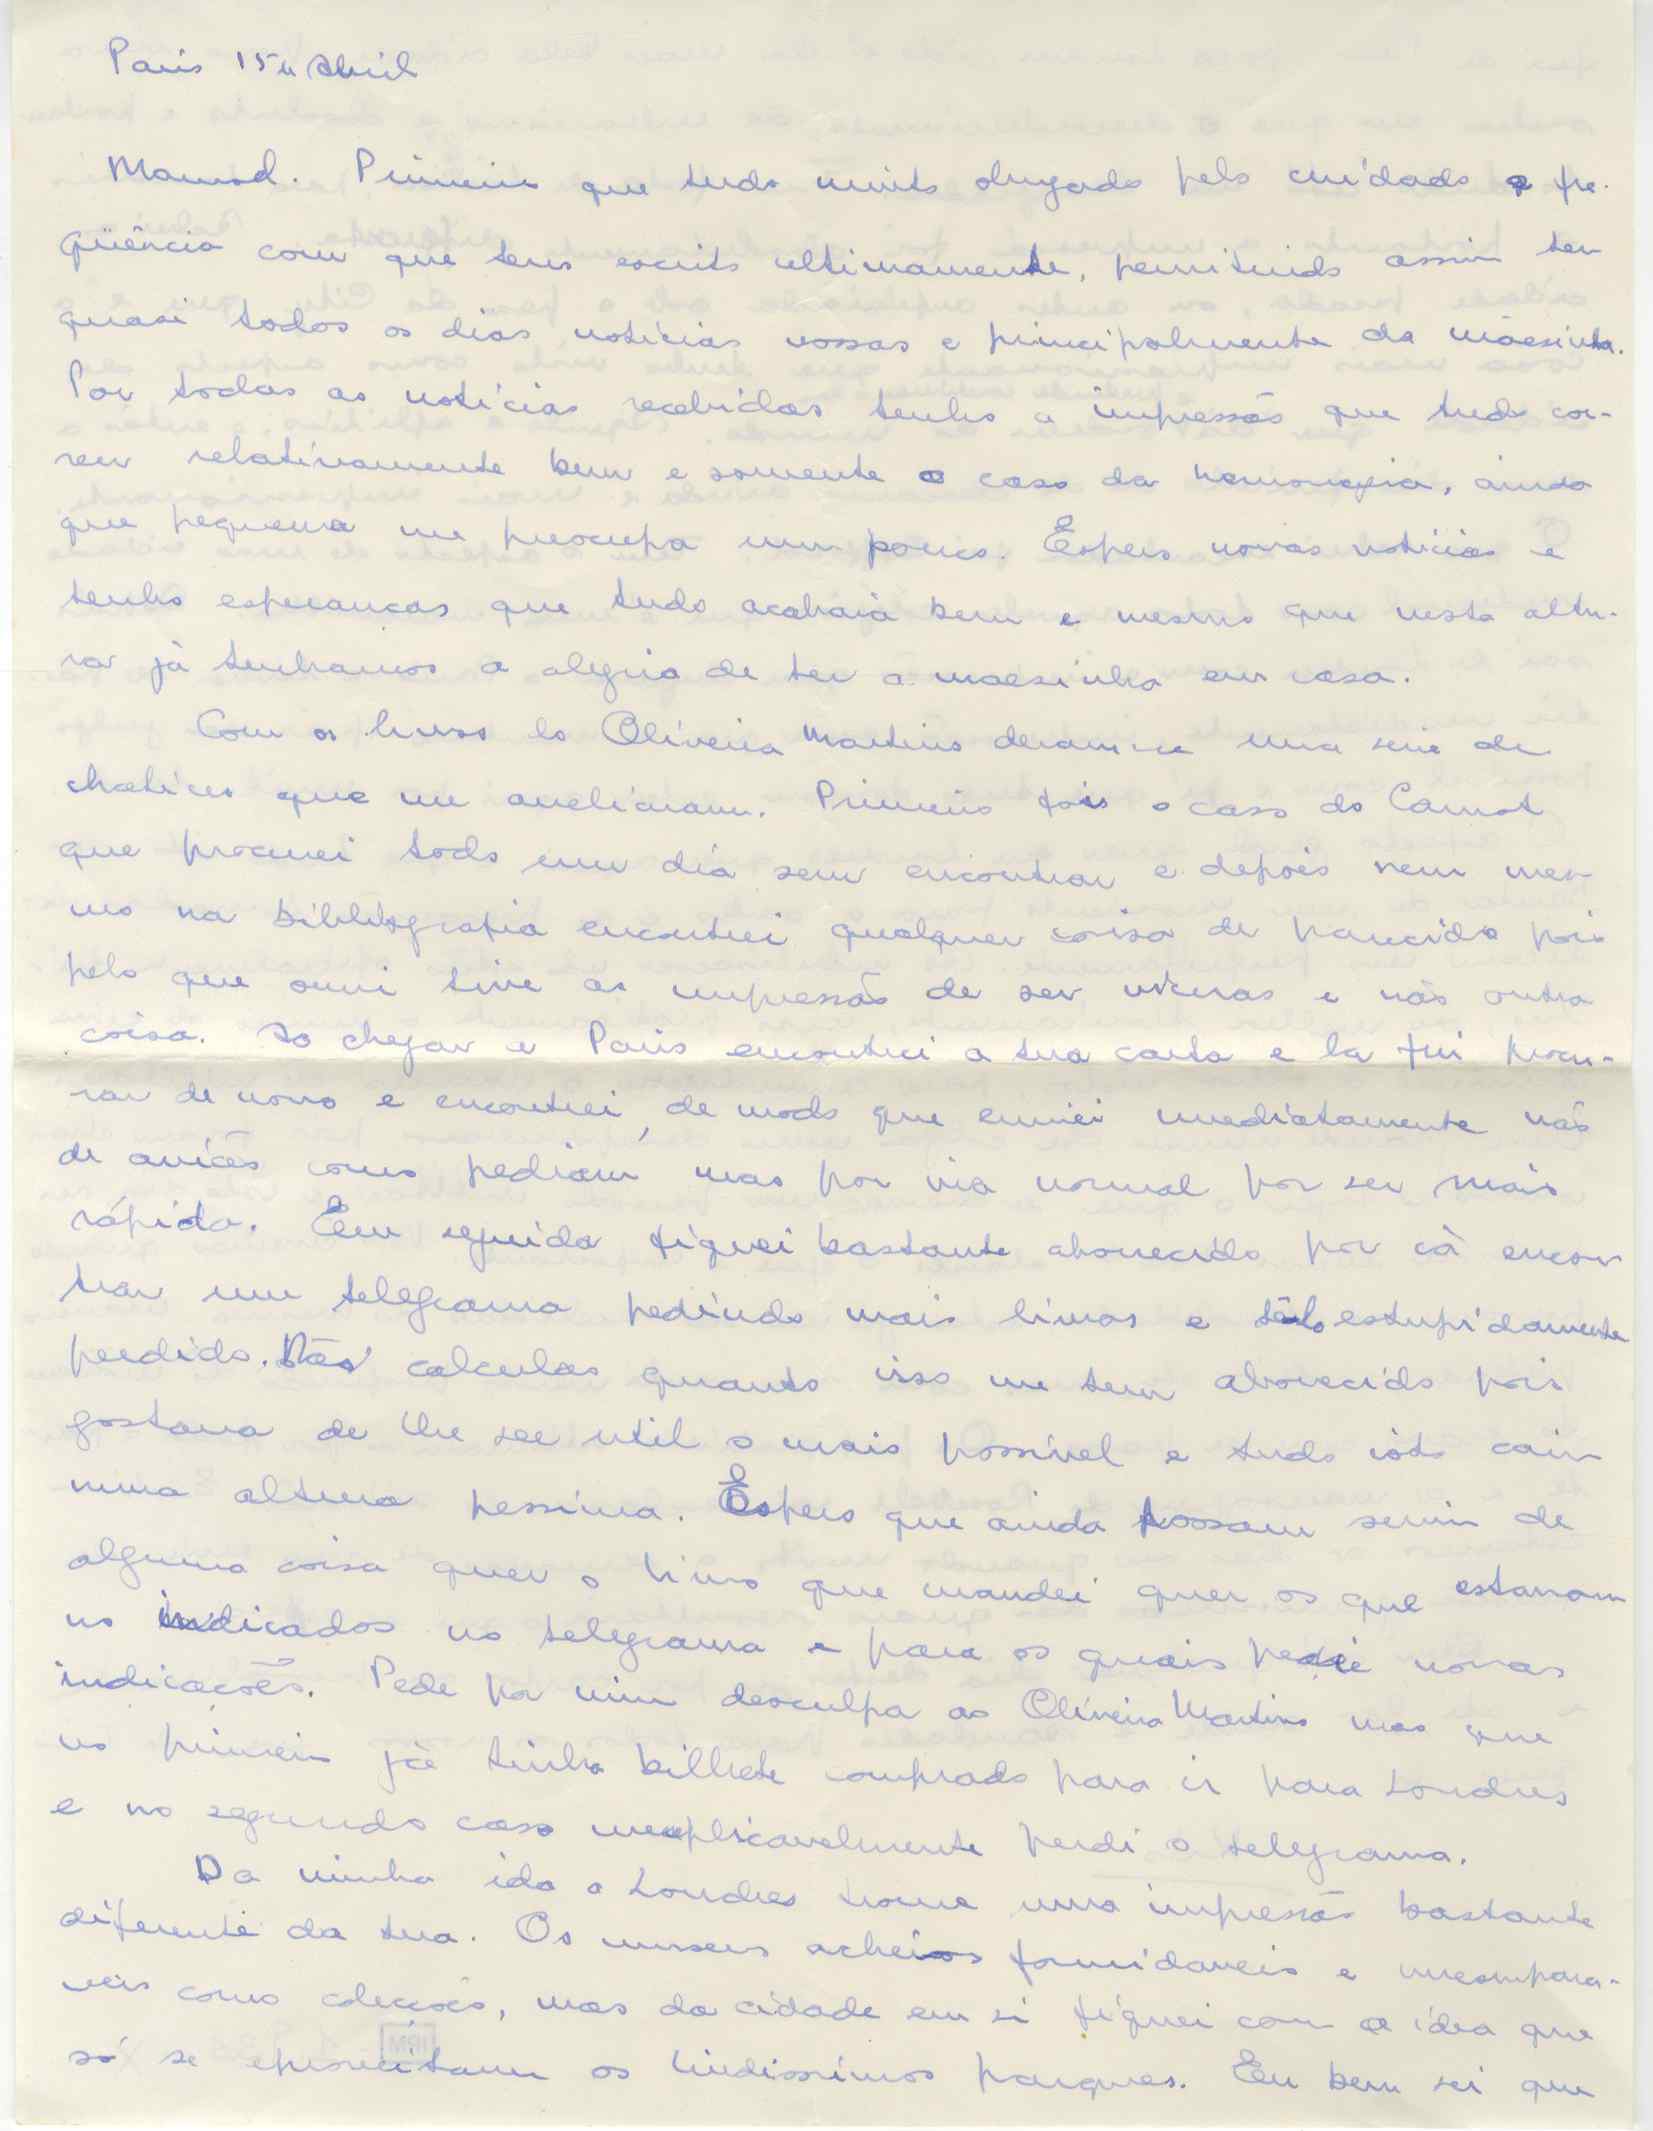 Paris 15 u Abril
Mamad. Primeiro que tudo muito obrigado pelo cuidado e fre-
qüência com que tens escrito ultimamente, permitindo assim ter
quasi todos os dias notícias vossas e principalmente da mãesinha.
Por todas as notícias recebidas tenho a impressão que tudo cor-
reu relativamente bem e somente o caso da hemorragia, ainda
que pequena me preocupa um pouco. Espero novas notícias e
tenho esperancas que tudo acabará bem e mesmo que nesta altu-
ra já tenhamos a alegria de ter a mãesinha em casa.
Com os livros do Oliveira Martins deram-se uma serie de
chatices que me arreliaram. Primeiro foi o caso do Carnot
que procurei todo um dia sem encontrar e depois nem mes-
mo na bibliografia encontrei qualquer coisa de parecido pois
pelo que ouvi tive a impressão de ser e não outra
coisa. Ao chegar a Paris encontrei a tua carta e la fui procu-
rar de novo e encontrei, de modo que enviei imediatamente não
de avião como pediam mas por via normal por ser mais
rápida. Em seguida fiquei bastante aborrecido por cá encon
trar um telegrama pedindo mais livros e tê-lo estupidamente
perdido. Não calculas quanto isso me tem aborrecido pois
gostava de lhe ser util o mais possível e tudo isto cair
numa altura pessima. Espero que ainda possam servir de
alguma coisa quer o livro que mandei quer os que estavam
no indicados no telegrama e para os quais pedi novas
indicações. Pede por mim desculpa ao Oliveira Martins mas que
no primeiro já tinha bilhete comprado para ir para Londres
e no segundo caso inexplicavelmente perdi o telegrama.
Da minha ida a Londres trouxe uma impressão bastante
diferente da tua. Os museus achei-os formidaveis e incompara-
veis como coleccões, mas da cidade em si fiquei com a idea que
só se aproveitam os lindissimos parques. Eu bem sei que